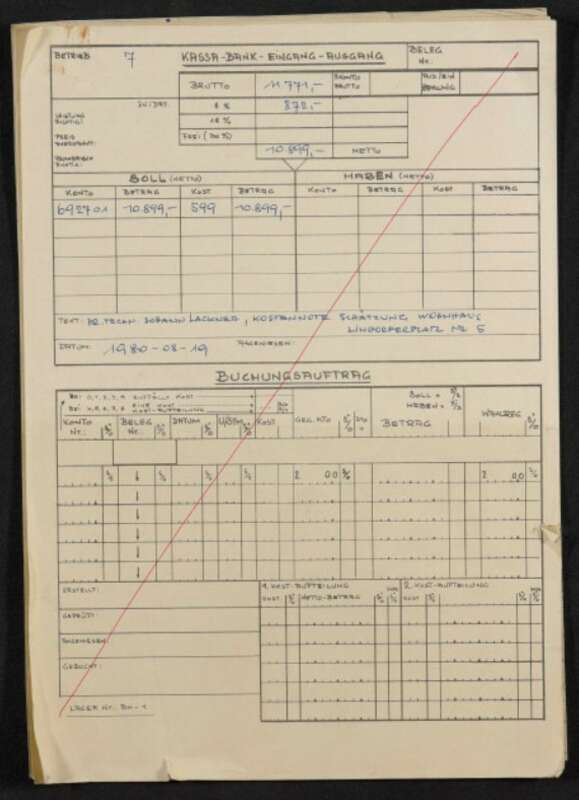 BETRIEB 7 KASSA-BANK-EINGANG-AUSGANG BELEG Nr.
BRUTTO 11 771,- SKONTO BRUTTO
ZU/DAT. 8 % 872,-
18 %
FREI (00 %)
10.899,- NETTO
SOLL (NETTO) HABEN (NETTO)
KONTO BETRAG KOST BETRAG KONTO BETRAG KOST BETRAG
692701 10.899,- 599 10.899,-
TEXT: JOHANN LACKNER, KOSTENNOTE SCHÄTZUNG WOHNHAUS
LINDORFERPLATZ Nr 5
DATUM: 1980-08-19 ANGEWIESEN:
BUCHUNGSAUFTRAG
SOLL =
HABEN =
KONTO Nr. BELEG Nr. DATUM KOST GEG. KTO BETRAG
2 00 2 00
ERSTELLT: 1. KOST-AUFTEILUNG 2. KOST-AUFTEILUNG
KOST NETTO-BETRAG KOST
GEPRÜFT:
ANGEWIESEN:
GEBUCHT:
LAGER Nr. BH-1